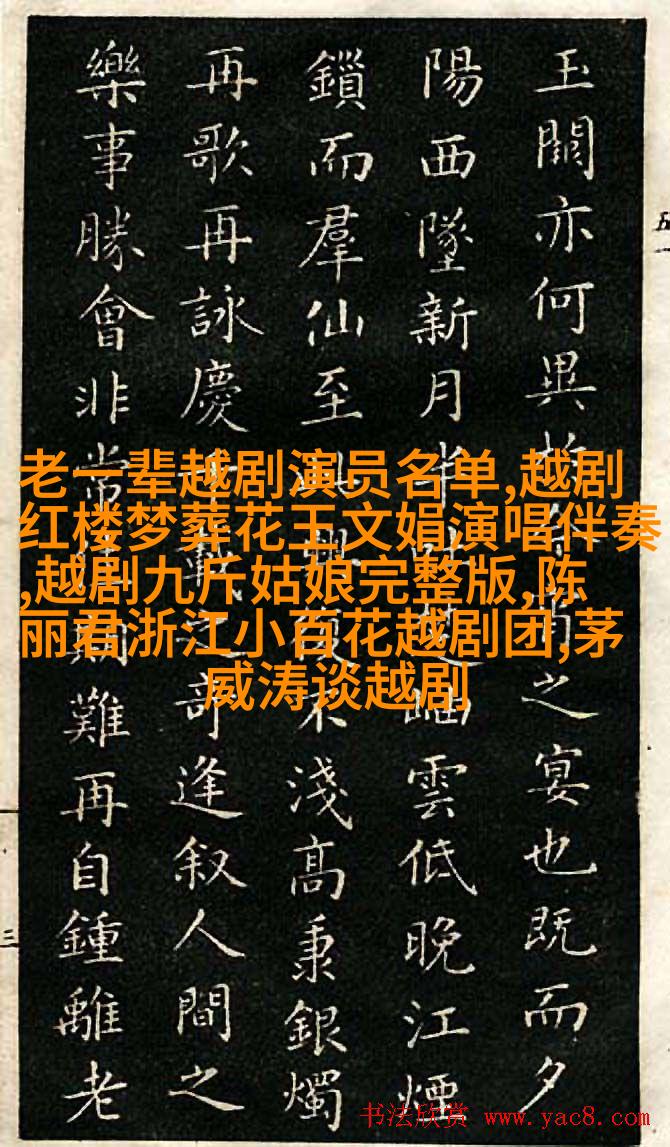 玉闕亦何異之宴也既而夕
陽西墜新月半吐楚岫雲低晚江煙
鎖而羣仙至此興復不淺高秉銀燭
再歌再詠慶千載之奇逢叙人間之
樂事勝會非常難再自鍾離老
老一辈越剧演员名单,越剧
红楼梦葬花王文娟演唱伴奏
,越剧九斤姑娘完整版,陈
丽君浙江小百花越剧团,茅
威涛谈越剧
五
三
书法欣赏 www.yac8.com